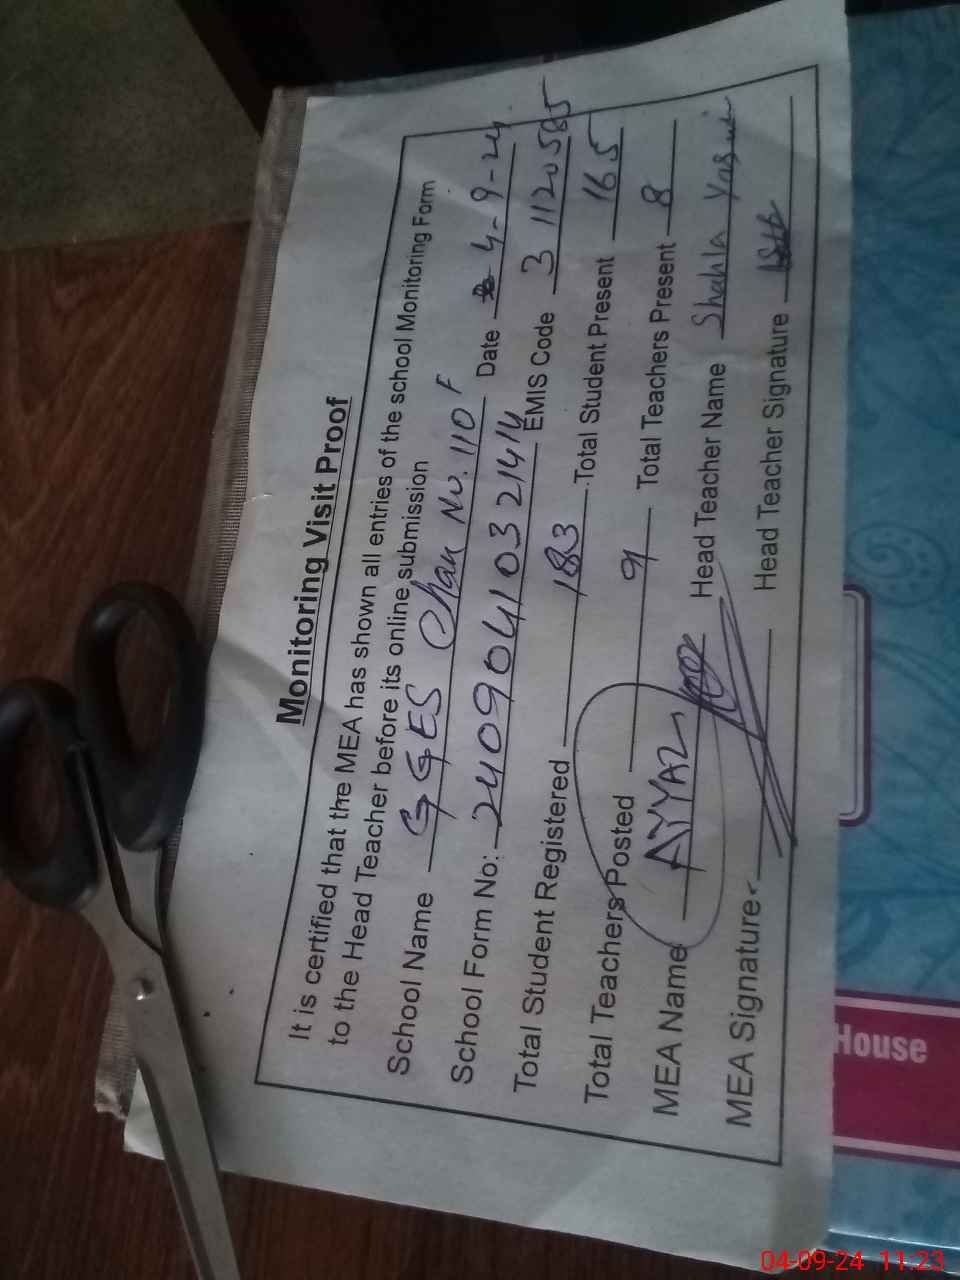 Monitoring Visit Proof
It is certified that the MEA has shown all entries of the school Monitoring Form
to the Head Teacher before its online submission
School Name GGES Chak No. 110 F Date 4-9-24
School Form No: 24090410321414 EMIS Code 31120585
Total Student Registered 183 Total Student Present 165
Total Teachers Posted 9 Total Teachers Present 8
MEA Name AYYAZ Head Teacher Name Shahla Yasmin
MEA Signature Head Teacher Signature
House
04-09-24 11:23